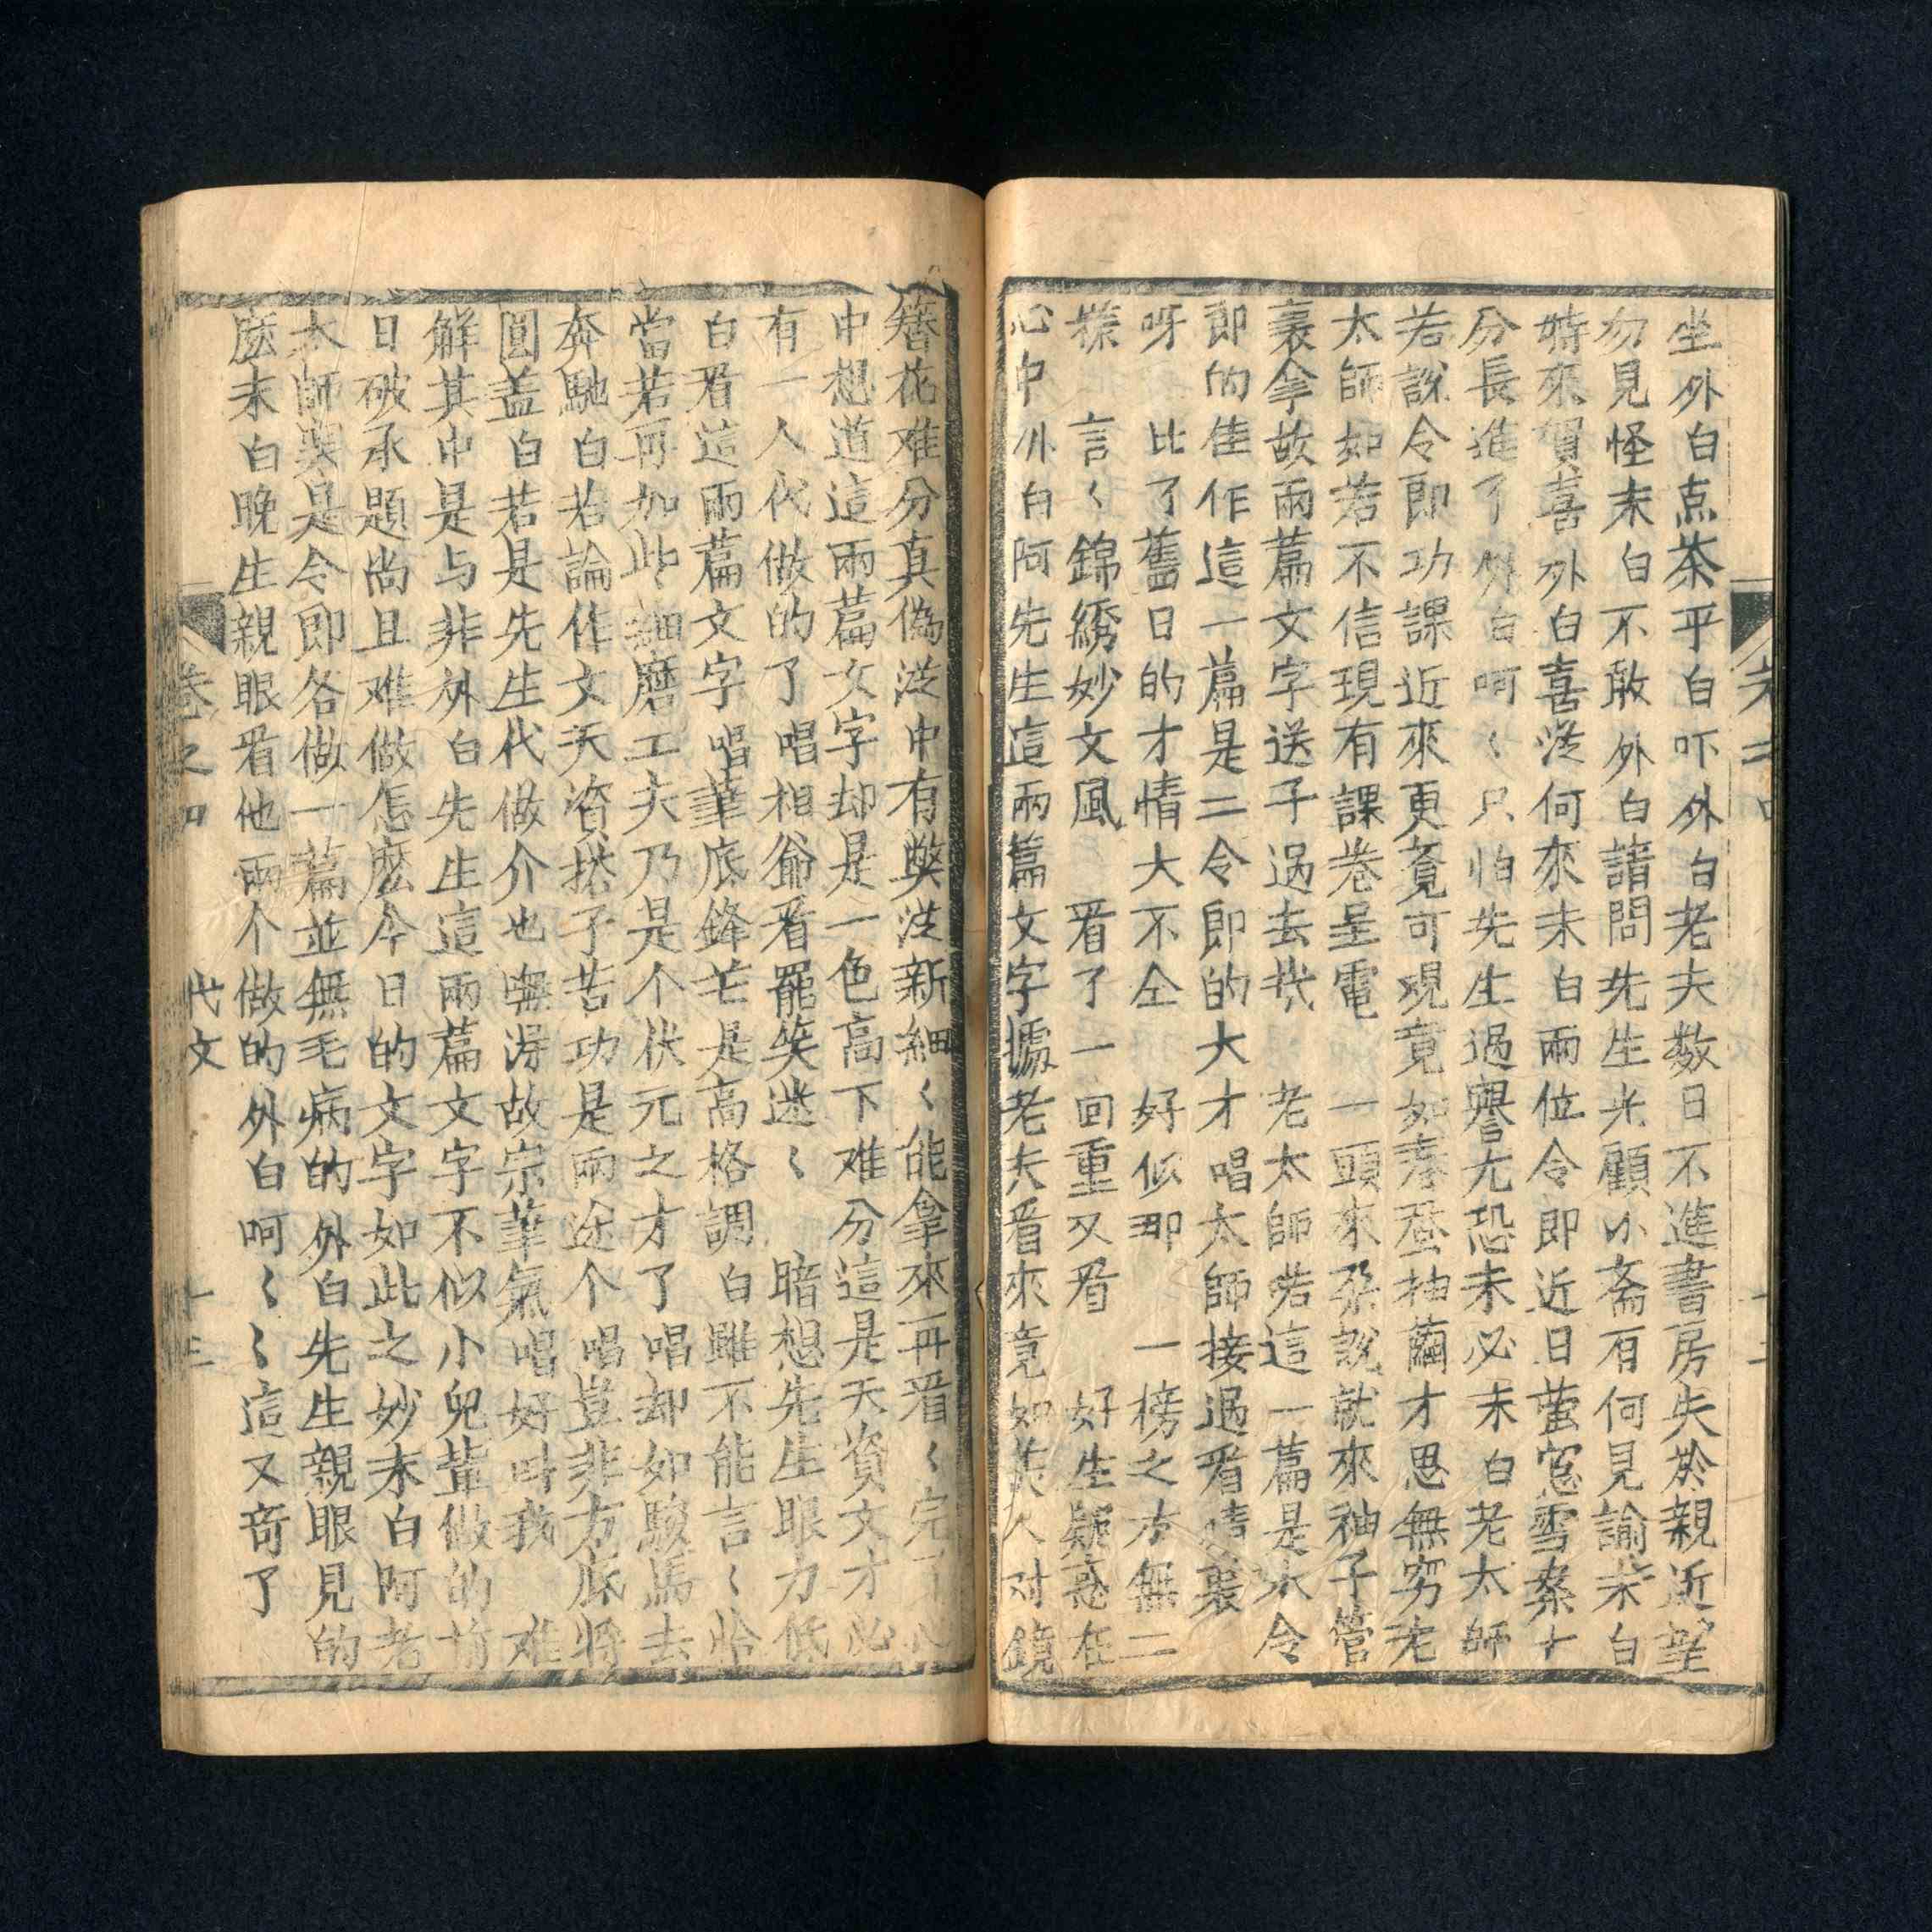 坐外白点茶乎白吓外白老夫数日不進書房失於親近望
勿見怪末白不敢外白請問先生光顧小斋有何見諭末白
特來賀喜外白喜從何來末白兩位令郎近日螢窓雪案十
分長進了外白呵〻只怕先生過譽尤恐未必末白老太師
若說令郎功課近來更竟可观竟如春蚕抽繭才思無穷老
太師如若不信現有課卷呈電一頭來尕說就來袖子管
裏拿故兩篇文字送子过去哉老太師若這一篇是大令
郎的佳作這一篇是二令郎的大才唱太師接過看情裏
呀比了舊日的才情大不仝好似那一榜之才無二
樣言〻錦綉妙文風看了一回重又看好生疑惑在
心中外白阿先生這兩篇文字據老夫看來竟如美人对鏡
簪花难分真偽從中有獘從新細〻能拿來再看〻完了心
中想道這兩篇文字却是一色高下难分這是天資文才必
有一人代做的了唱相爺看罷笑迷〻暗想先生眼力低
白看這兩篇文字唱筆底鋒芒是高格調白雖不能言〻恰
當若可如此細磨工夫乃是个状元之才了唱却如駿馬去
奔馳白若論作文天資搭子苦功是兩途个唱豈非方底將
圓盖白若是先生代做介也嘸淂故宗筆氣唱好呌我难
解其中是与非外白先生這兩篇文字不似小兒輩做的前
日破承題尚且难做怎麽今日的文字如此之妙末白阿老
太師果是令郎各做一篇並無毛病的外白先生親眼見的
麽末白晚生親眼看他兩个做的外白呵〻〻這又奇了
卷之四 代文 十三